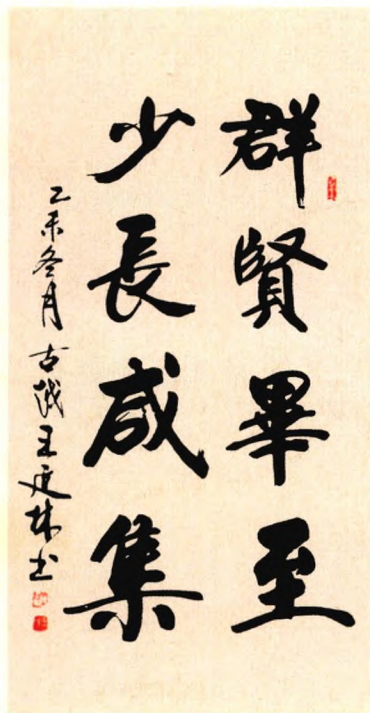 群賢畢至
少長咸集
乙未冬月古越王延林书